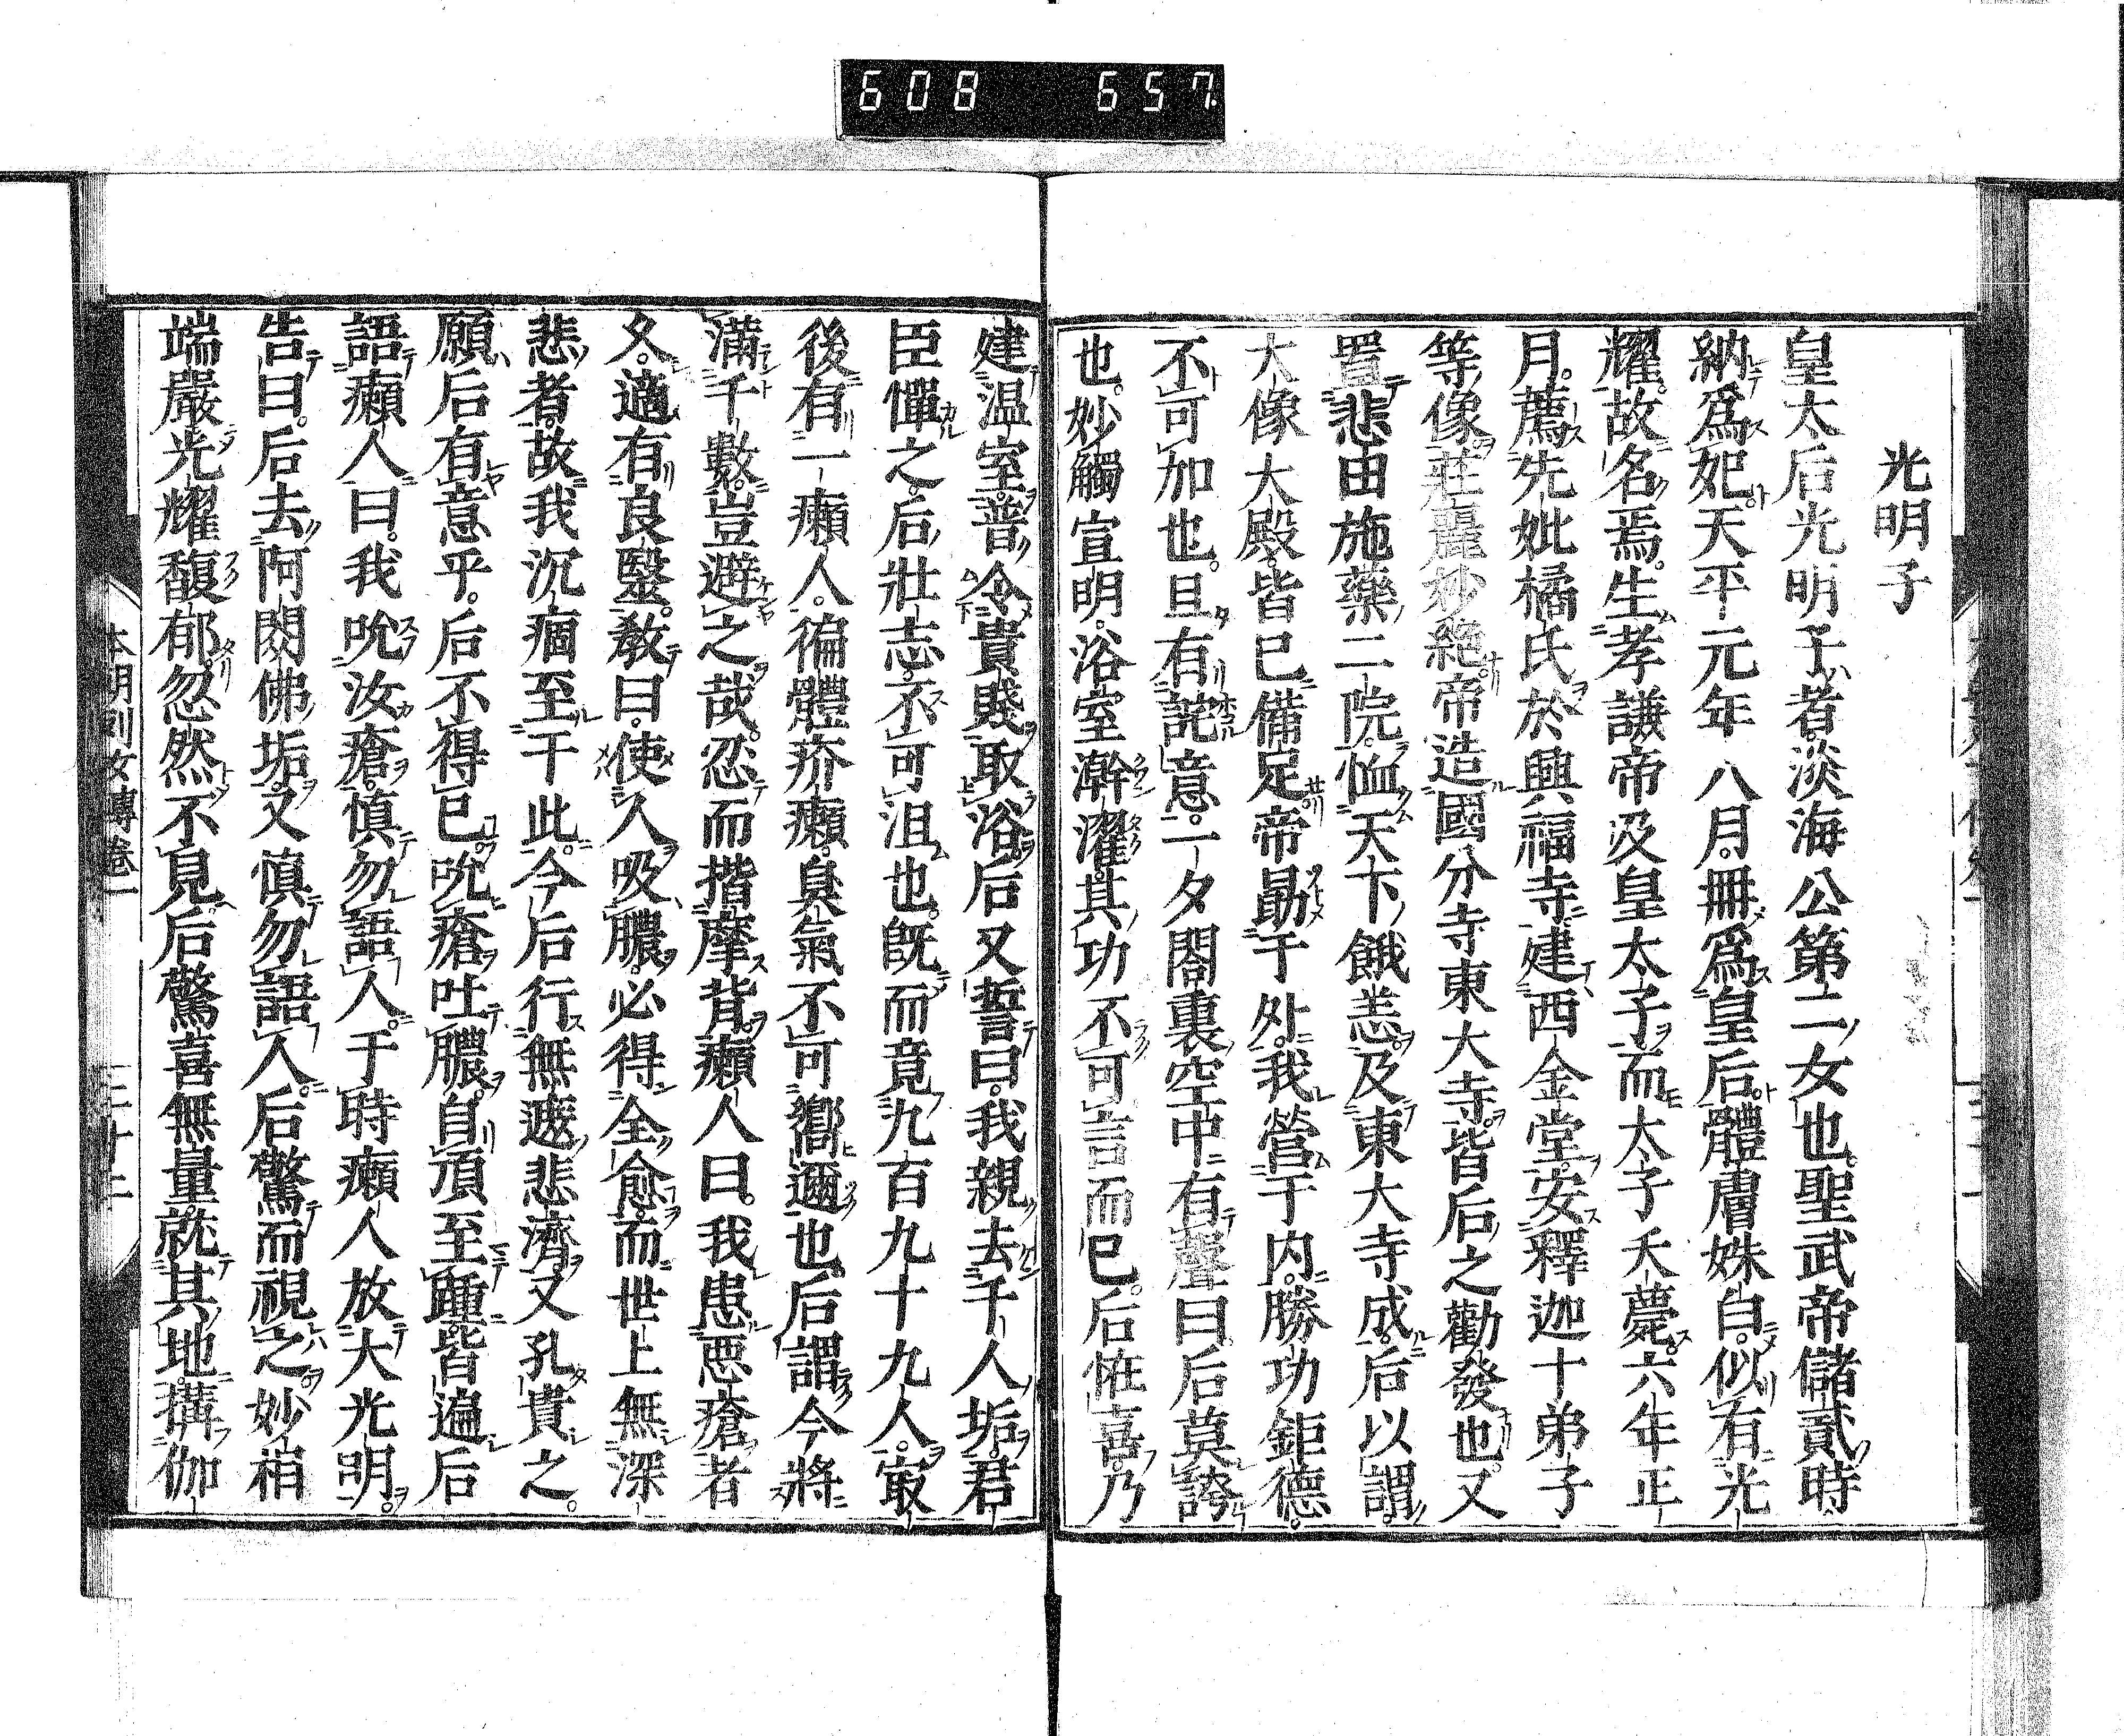 608 657
光明子
皇太后光明子者淡海公第二女也聖武帝儲貳時
納爲妃天平元年八月冊爲皇后體膚姝白似有光
耀故名焉生孝謙帝及皇太子而太子夭薨六年正
月薦先妣橘氏於興福寺建西金堂安釋迦十弟子
等像莊麗妙絶帝造國分寺東大寺皆后之勸發也又
置悲田施藥二院恤天下餓恙及東大寺成后以謂
大像大殿皆已備足帝勗于外我營于内勝功鉅德
不可加也且有詫意一夕閤裏空中有聲曰后莫誇
也妙觸宣明浴室澣濯其功不可言而已后恠喜乃
建温室普令貴賤取浴后又誓曰我親去千人垢君
臣憚之后壯志不可沮也既而竟九百九十九人㝡
後有一癩人徧體疥癩臭氣不可嚮邇也后謂今將
滿千數豈避之哉忍而揩摩背癩人曰我患惡瘡者
久適有良毉教曰使人吸膿必得全愈而世上無深
悲者故我沉痼至于此今后行無遮悲濟又孔貴之
願后有意乎后不得已吮瘡吐膿自頂至踵皆遍后
語癩人曰我吮汝瘡慎勿語人于時癩人放大光明
告曰后去阿閦佛垢又慎勿語人后驚而視之妙相
端嚴光耀馥郁忽然不見后驚喜無量就其地搆伽
本朝列女傳卷一
二十二